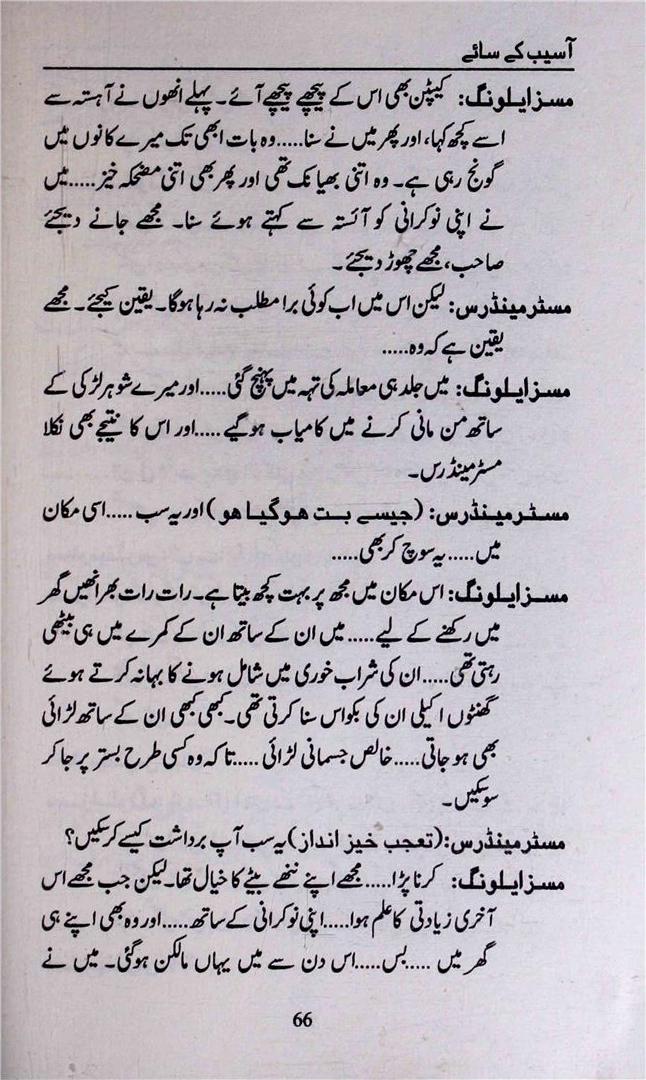 آسیب کے سائے
مسز ایلونگ: کیپٹن بھی اس کے پیچھے پیچھے آئے۔ پہلے انھوں نے آہستہ سے
اسے کچھ کہا، اور پھر میں نے سنا.....وہ بات ابھی تک میرے کانوں میں
گونج رہی ہے۔ وہ اتنی بھیانک تھی اور پھر بھی اتنی مضحکہ خیز.....میں
نے اپنی نوکرانی کو آئستہ سے کہتے ہوئے سنا۔ مجھے جانے دیجئے
صاحب، مجھے چھوڑ دیجئے۔
مسٹر مینڈرس: لیکن اس میں اب کوئی برا مطلب نہ رہا ہوگا۔ یقین کیجئے۔ مجھے
یقین ہے کہ وہ.....
مسز ایلونگ: میں جلد ہی معاملہ کی تہہ میں پہنچ گئی.....اور میرے شوہر لڑکی کے
ساتھ من مانی کرنے میں کامیاب ہوگیے.....اور اس کا نتیجے بھی نکلا
مسٹر مینڈرس۔
مسٹر مینڈرس: (جیسے بت ہوگیا ہو) اور یہ سب.....اسی مکان
میں.....یہ سوچ کر بھی.....
مسز ایلونگ: اس مکان میں مجھ پر بہت کچھ بیتا ہے۔ رات رات بھر انھیں گھر
میں رکھنے کے لیے.....میں ان کے ساتھ ان کے کمرے میں ہی بیٹھی
رہتی تھی.....ان کی شراب خوری میں شامل ہونے کا بہانہ کرتے ہوئے
گھنٹوں اکیلی ان کی بکواس سنا کرتی تھی۔ کبھی کبھی ان کے ساتھ لڑائی
بھی ہو جاتی.....خالص جسمانی لڑائی.....تاکہ وہ کسی طرح بستر پر جا کر
سوسکیں۔
مسٹر مینڈرس: (تعجب خیز انداز) یہ سب آپ برداشت کیسے کرسکیں؟
مسز ایلونگ: کرنا پڑا.....مجھے اپنے ننھے بیٹے کا خیال تھا۔ لیکن جب مجھے اس
آخری زیادتی کا علم ہوا.....اپنی نوکرانی کے ساتھ.....اور وہ بھی اپنے ہی
گھر میں.....بس.....اس دن سے میں یہاں مالکن ہوگئی۔ میں نے
66